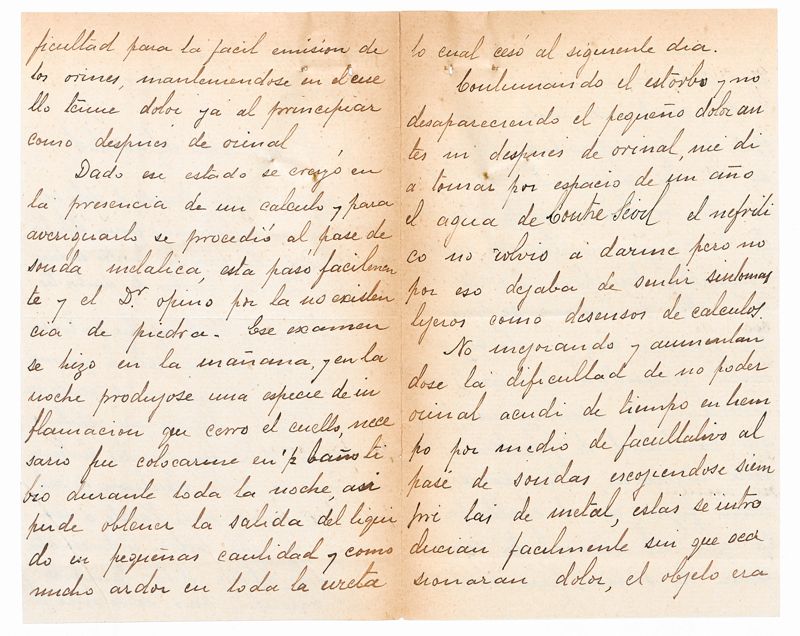 ficultad para la facil emision de
los orines, manteniendose en el cue
llo tenue dolor ya al principiar
como despues de orinal
Dado ese estado se creyó en
la presencia de un calculo y para
averiguarlo se procedió al pase de
sonda metalica, esta paso facilmen
te y el Dr. opino por la no existen
cia de piedra. Ese examen
se hizo en la mañana, y en la
noche produjose una especie de in
flamacion que cerro el cuello, nece
sario fue colocarme en ½ baño ti
bio durante toda la noche, asi
pude obtener la salida del liqui
do en pequeñas cantidad y como
mucho ardor en toda la ureta
lo cual cesó al siguiente dia.
Continuando el estorbo y no
desapareciendo el pequeño dolor an
tes ni despues de orinal, me di
a tomar por espacio de un año
el agua de el nefriti
co no volvio a darme pero no
por eso dejaba de sentir sintomas
lijeros como desensos de calculos.
No mejorando y aumentan
dose la dificultad de no poder
orinal acudi de tiempo en tiem
po por medio de facultativo al
pase de sondas escojiendose siem
pre las de metal, estas se intro
ducian facilmente sin que oca
sionaran dolor, el objeto era